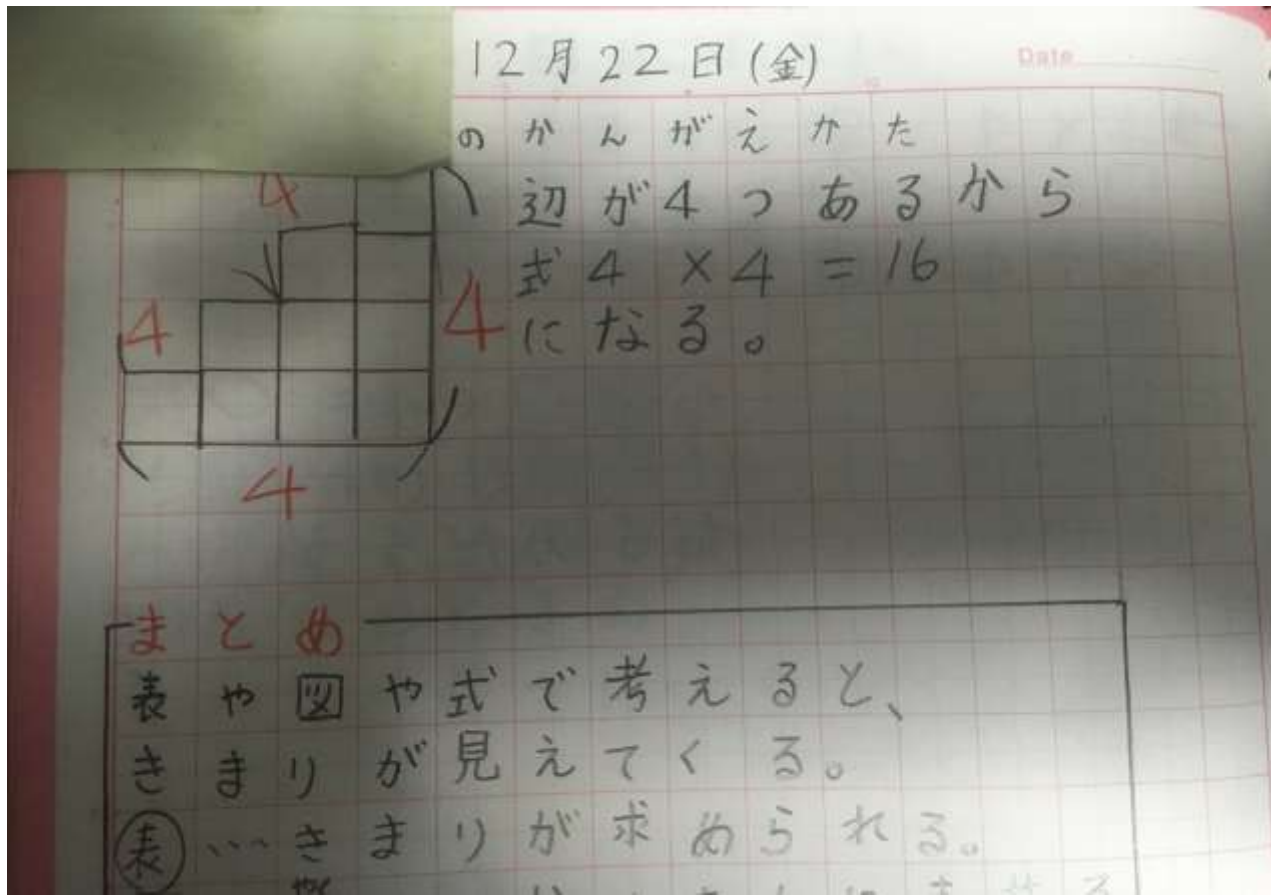 12月22日(金)
Date
のかんがえかた
辺が4つあるから
式4×4=16
になる。
4
4
4
4
まとめ
表や図や式で考えると、
きまりが見えてくる。
表…きまりが求められる。